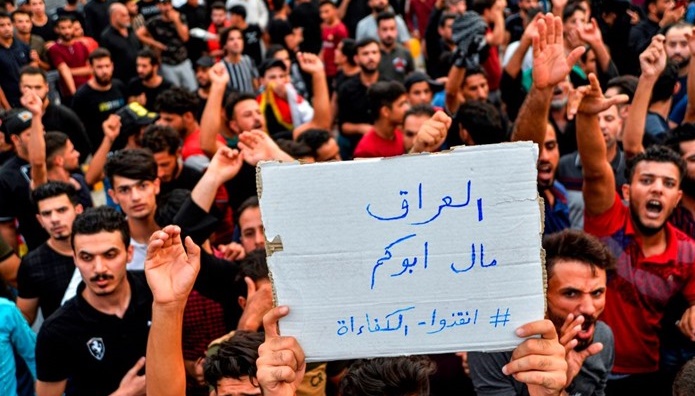 العراق
مال ابوكم
# انقذوا - الكفاءاة